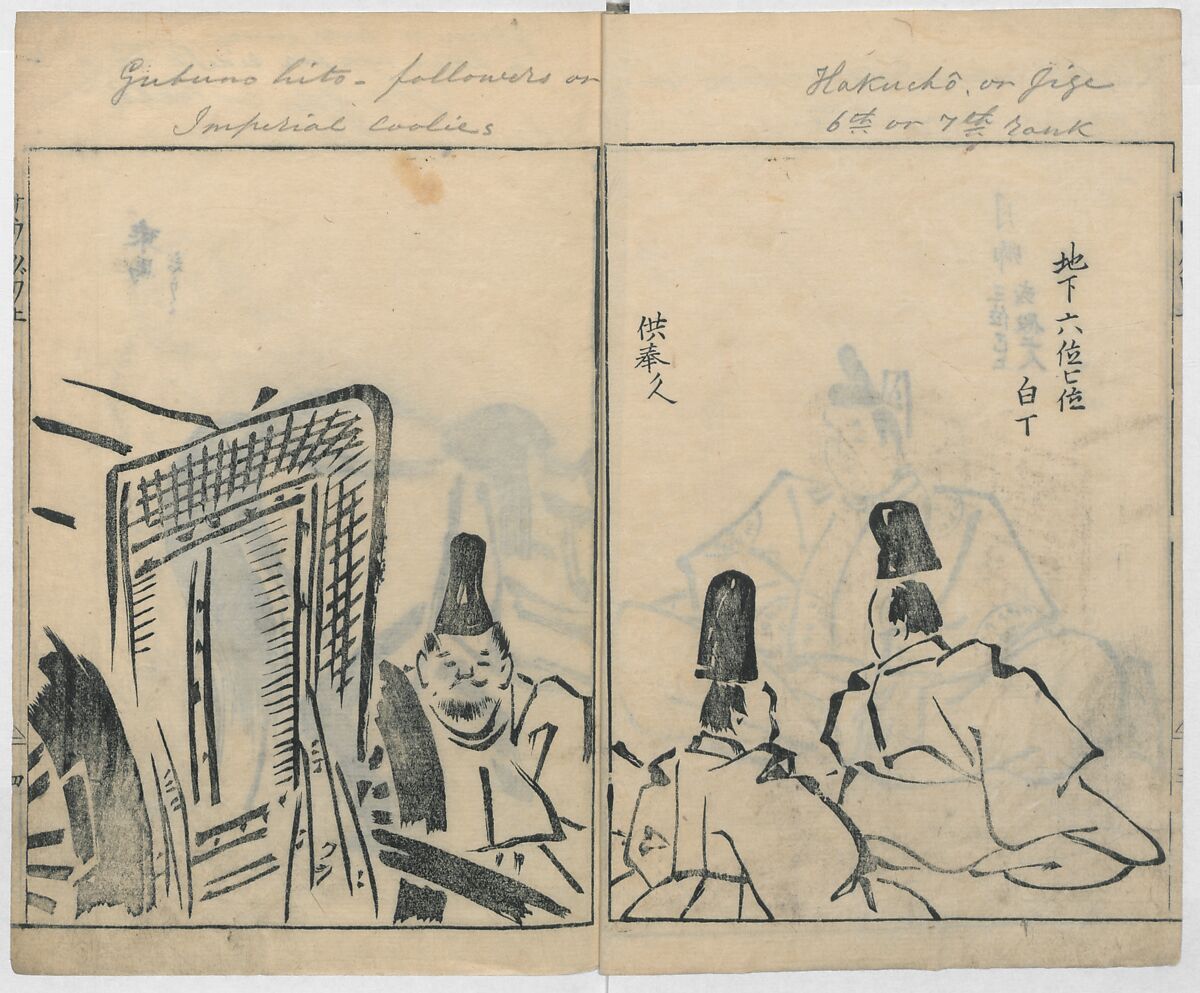 Gubuno hito - followers or
Imperial coolies
Hakuchō, or Jige
6th or 7th rank
地下六位七位
白丁
供奉人
四